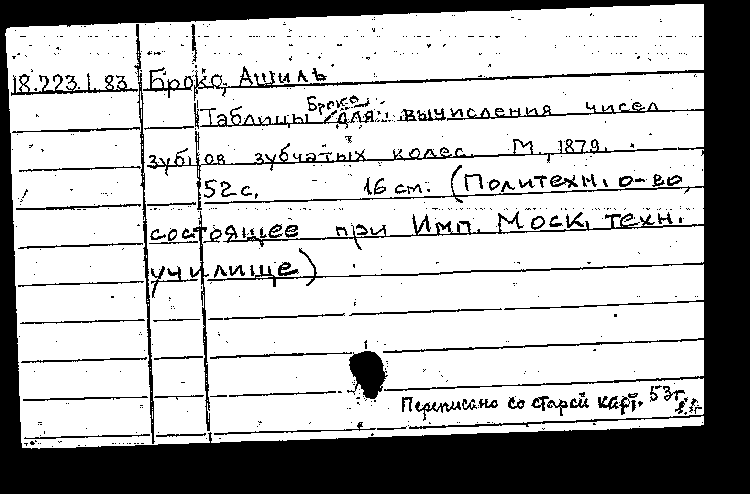 18.223.1.83 Броко, Ашиль
Таблицы Броко для вычисления чисел
зубцов зубчатых колес. М., 1879.
52 с. 16 см. (Политехн. о-во,
состоящее при Имп. Моск. техн.
училище)
Переписано со старой карт. 53 г.